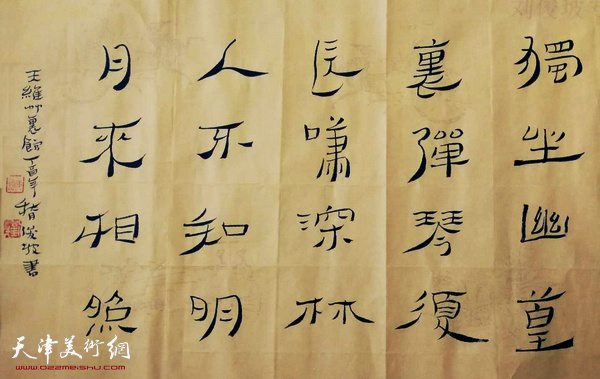 獨坐幽篁
裏彈琴復
長嘯深林
人不知明
月來相照
王維竹裏館丁酉年俊坡書
天津美術網
www.022meishu.com